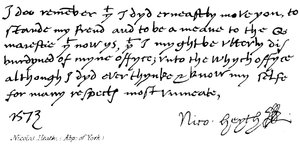 I doo remember yt I dyd erneastly move you, to
stande my frend and to be a meane to the Qs
majestie yt now ys, yt I myght be utterly dis
burdyned of myne offyce, unto the whych offyce
although I dyd ever thynke & know my selfe
for many respects most unmeate,
1573
Nico. Heyth
Nicolas Heath (Abp. of York)